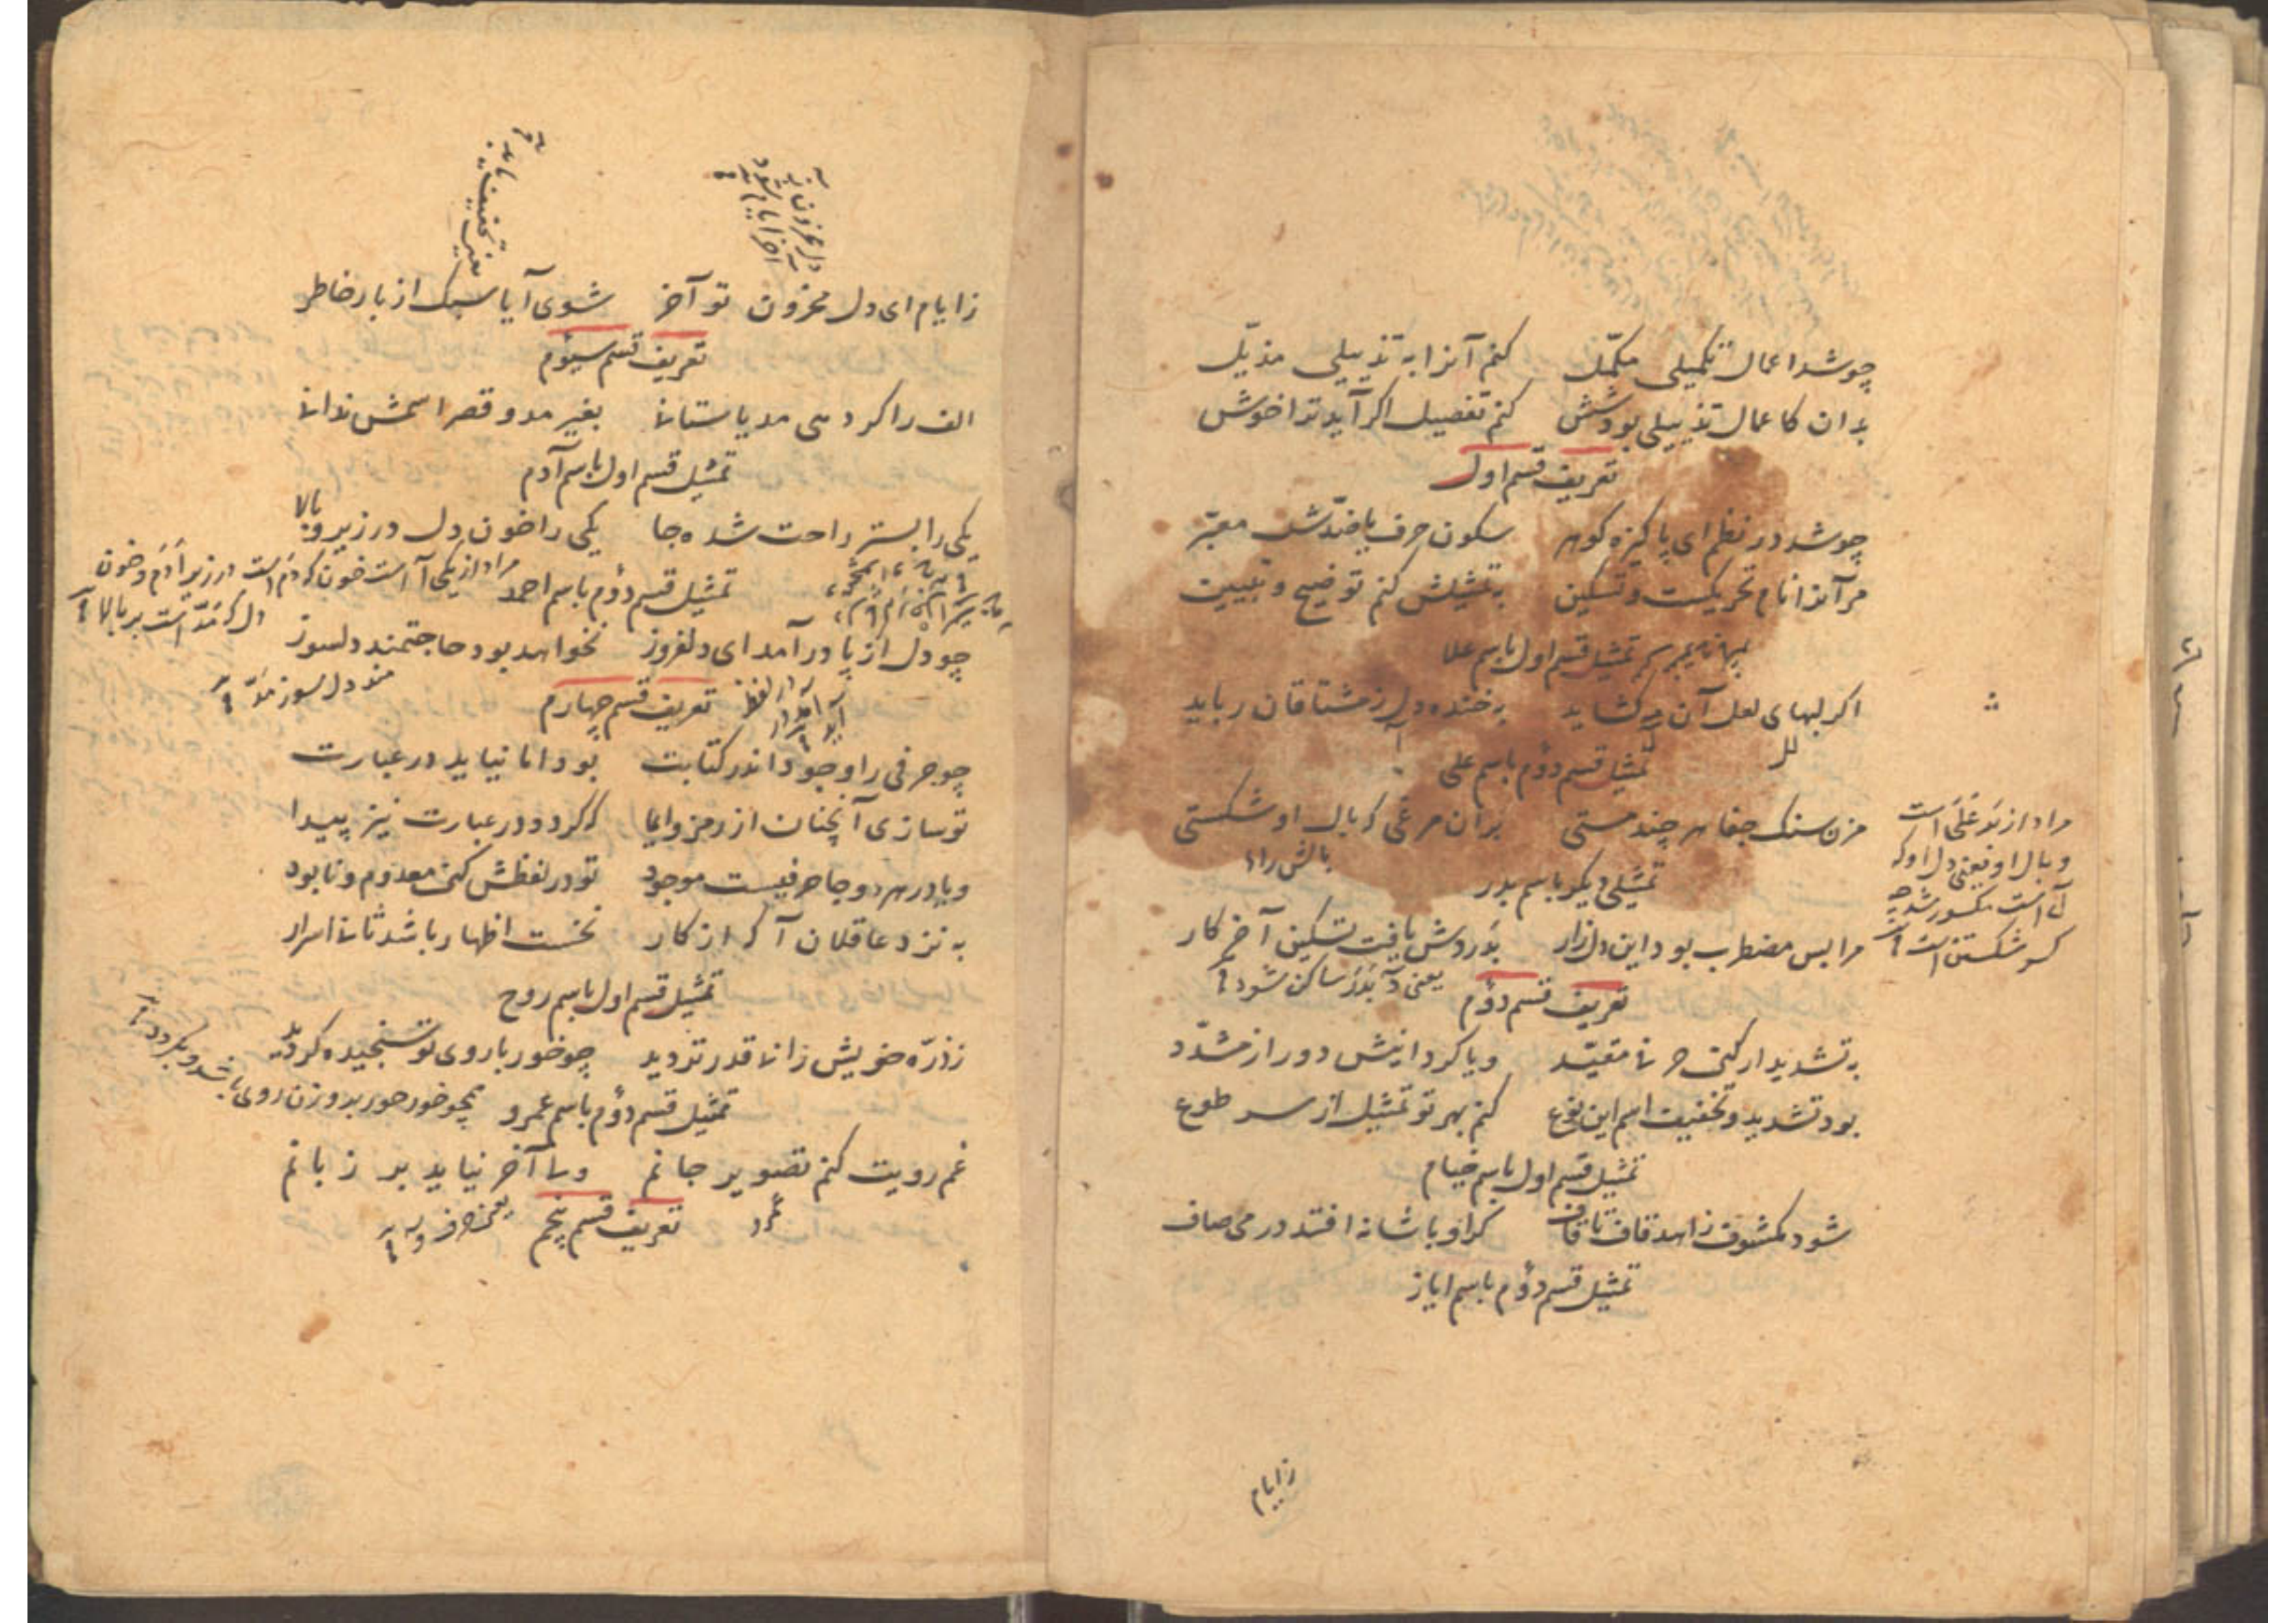 چو شد اعمال تکمیلی مکمّل کنم آنرا به تذییلی مذیّل
بدان کاعمال تذییلی بود شش کنم تفصیل اکر آید ترا خوش
تعریف قسم اول
چو شد در نظم ای پاکیزه کوهر سکون حرف یا ضدّش معبّر
مر آنرا نام تحریکست و تسکین به تمثیلش کنم توضیح و تبیین
تمثیل قسم اول باسم علا
اکر لبهای لعل آن مه کشاید به خنده دل ز مشتاقان رباید
لل
تمثیل قسم دوُم باسم علی
مزن سنک جفا هر چند مستی بران مرغی که بال او شکستی
مراد از بَر عَلَی است
و بال او یعنی دل او که
لَ است مکسور شد چه
کسر شکستن است
بالش را
تمثیلی دیکر باسم بدر
مرا بس مضطرب بود این دل زار بَدَر دردش یافت تسکین آخر کار
تعریف قسم دوُم
یعنی دَ بَدَر ساکن شود
به تشدید ار کنی حرفی مقیّد و یا کردانیش دور از مشدّد
بود تشدید و تخفیف اسم این نوع کنم بهر تو تمثیل از سر طوع
تمثیل قسم اول باسم خیام
شود مکشوف زاهد قاف تا قاف کر او با شانه افتد در می صاف
تمثیل قسم دوُم باسم ایاز
زایام
دل محزون
آخر ایام شود
یعنی تخفیف یابد
زایام ای دل محزون تو آخر شوی آیا سبک از بار خاطر
تعریف قسم سیوُم
الف را کر دهی مد یا ستانی بغیر مد و قصر اسمش ندانی
تمثیل قسم اول باسم آدم
یکی را بستر راحت شده جا یکی را خون دل در زیر و بالا
مراد از یکی آ است خون که دم است در زیر آدم و خون
دل که مَدّ است بر بالا
تمثیل قسم دوُم باسم احمد
چو دل از پا در آمد ای دلفروز نخواهد بود حاجتمند دلسوز
مند دل سوز مَدّ
تعریف قسم چهارم
چو حرفی را وجود اندر کتابت بود اما نیاید در عبارت
تو سازی آنچنان از رمز و ایما که کردد در عبارت نیز پیدا
و یا در هر دو جا حرفیست موجود تو در لفظش کنی معدوم و نابود
به نزد عاقلان آکه از کار نخست اظهار باشد ثانی اسرار
تمثیل قسم اول باسم روح
ز ذرّه خویش زانی قدر تر دید چو خور با روی تو سنجیده کردید
تمثیل قسم دوُم باسم عمرو
غم رویت کنم تصویر جانم ولی آخر نیاید بر زبانم
عمرو
تعریف قسم پنجم
یعنی حرف و